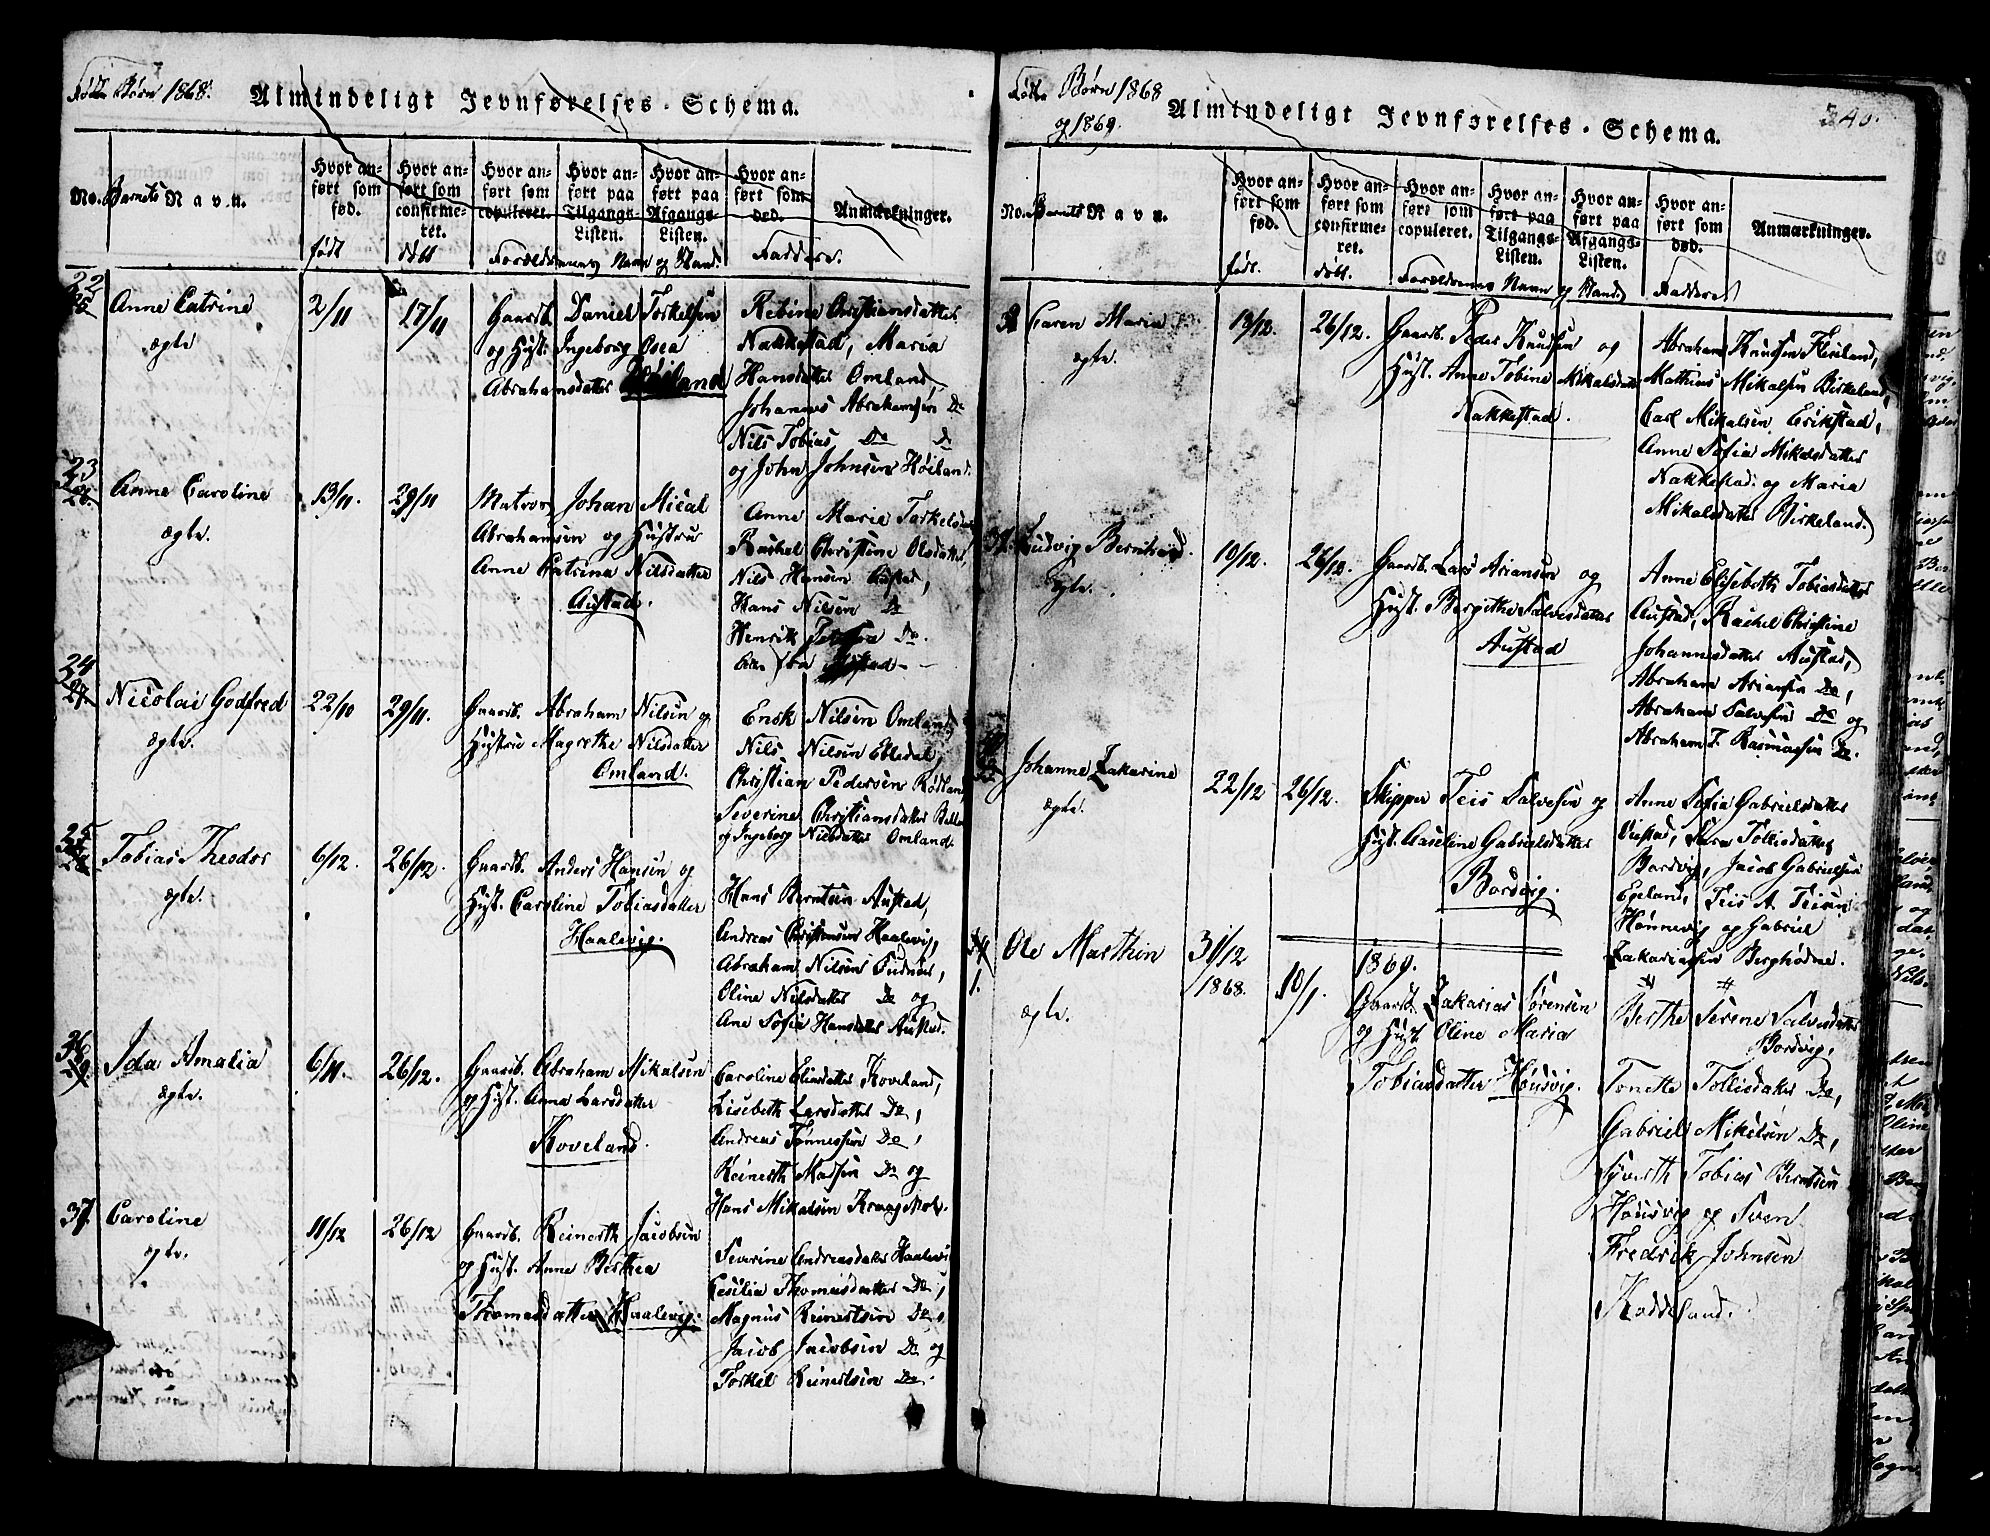 Fødte Børn 1868.
Almindeligt Jevnførelses-Schema.
No. Barnets Navn.
Hvor anført som fød.
Hvor anført som confirmeret.
Hvor anført som copuleret.
Hvor anført paa Tilgangs-Listen.
Hvor anført paa Afgangs-Listen.
Hvor anført som død.
Anmærkninger.
født
døbt
Forældrenes Navn og Stand.
Faddere.
22
Anne Catrine
ægte
2/11
17/11
Gaardb. Daniel Torkelsen
og Hust. Ingeborg Osea
Abrahamsdatter Høiland
Rebine Christiansdatter
Nakkestad, Maria
Hansdatter Omland,
Johannes Abrahamsen Do
Nils Tobias Do
og John Johnsen Høiland.
23
Anne Caroline
ægte.
13/11.
29/11
Matros Johan Mical
Abrahamsen og Hustru
Anne Catrina Nilsdatter
Austad.
Anne Marie Torkelsdatter
Rachel Christine Olsdatter,
Nils Hansen Austad,
Hans Nilsen Do
Henrik Do.
24
27
Nicolai Godfred
ægte.
22/10
29/11.
Gaardb. Abraham Nilsen og
Hustru Magrethe Nilsdatter
Omland.
Enok Nilsen Omland,
Nils Nilsen Ebledal,
Christian Pedersen Røiland
Severine Christiansdatter
og Ingeborg Nilsdatter Omland.
25
Tobias Theodor
ægte.
6/12.
26/12.
Gaardb. Anders Hansen og
Hust. Caroline Tobiasdatter
Haalevig.
Hans Berntsen Austad,
Andreas Christensen Haalevig,
Abraham Nilsen
Oline Nilsdatter Do og
Ane Sofia Hansdatter Austad.
Ida Amalia
ægte.
6/11.
26/12.
Gaardb. Abraham Mikalsen
og Hust. Anna Larsdatter
Koveland.
Caroline Eliasdatter Koveland,
Lisebeth Larsdatter Do,
Andreas Tønnessen Do,
Reinerth Madsen Do og
Hans Mikalsen
37
Caroline
ægte.
11/12
26/12
Gaardb. Reinerth Jacobsen
og Hust. Anne Berthea
Thomasdatter Haalevig.
Severine Andreasdatter Haalevig
Cecilia Thomasdatter Do,
Magnus Reinertsen Do,
Jacob Jacobsen Do og
Torkel Reinertsen Do.
Fødte Børn 1868
og 1869.
Almindeligt Jevnførelses-Schema.
40.
No. Barnets Navn.
Hvor anført som fød.
Hvor anført som confirmeret.
Hvor anført som copuleret.
Hvor anført paa Tilgangs-Listen.
Hvor anført paa Afgangs-Listen.
Hvor anført som død.
Anmærkninger.
født.
døbt.
Forældrenes Navn og Stand
Faddere
Caren Maria
ægte.
13/12.
26/12.
Gaardb. Peder Knudsen og
Hust. Anne Tobine Mikalsdatter
Nakkestad.
Abraham Knudsen
Mathias Mikalsen Birkeland,
Carl Mikalsen Erikstad,
Anne Sofia Mikalsdatter
Nakkestad, og Maria
Mikalsdatter Birkeland.
Ludvig Bernhard.
ægte.
10/12.
26/12.
Gaardb. Lars Ariansen og
Hust. Bergithe Salvesdatter
Austad
Anne Elisebeth Tobiasdatter
Austad, Rachel Christine
Johannesdatter Austad,
Abraham Ariansen Do,
Abraham Salvesen Do og
Abraham T. Rasmussen Do.
Johanne Zakarine
ægte.
22/12
26/12.
Skipper Teis Salvesen og
Hust. Aaseline Gabrielsdatter
Bordvig.
Anne Sofia Gabrielsdatter
Sara Tollisdatter
Bordvig, Jacob Gabrielsen
Egeland, Teis A. Teisen
Hønnevig og Gabriel
Zakariassen
1.
Ole Marthin
ægte.
31/12
1868.
10/1.
1869.
Gaardb. Zakarias Sørensen
og Hust. Oline Maria
Tobiasdatter Housvig.
Berthe Serene Salvesdatter
Bordvig,
Tonette Tollisdatter Do,
Gabriel Mikelsen Do,
Syverth Tobias Berntsen
Housvig og Sven
Fredrik Johnsen
Koddeland.